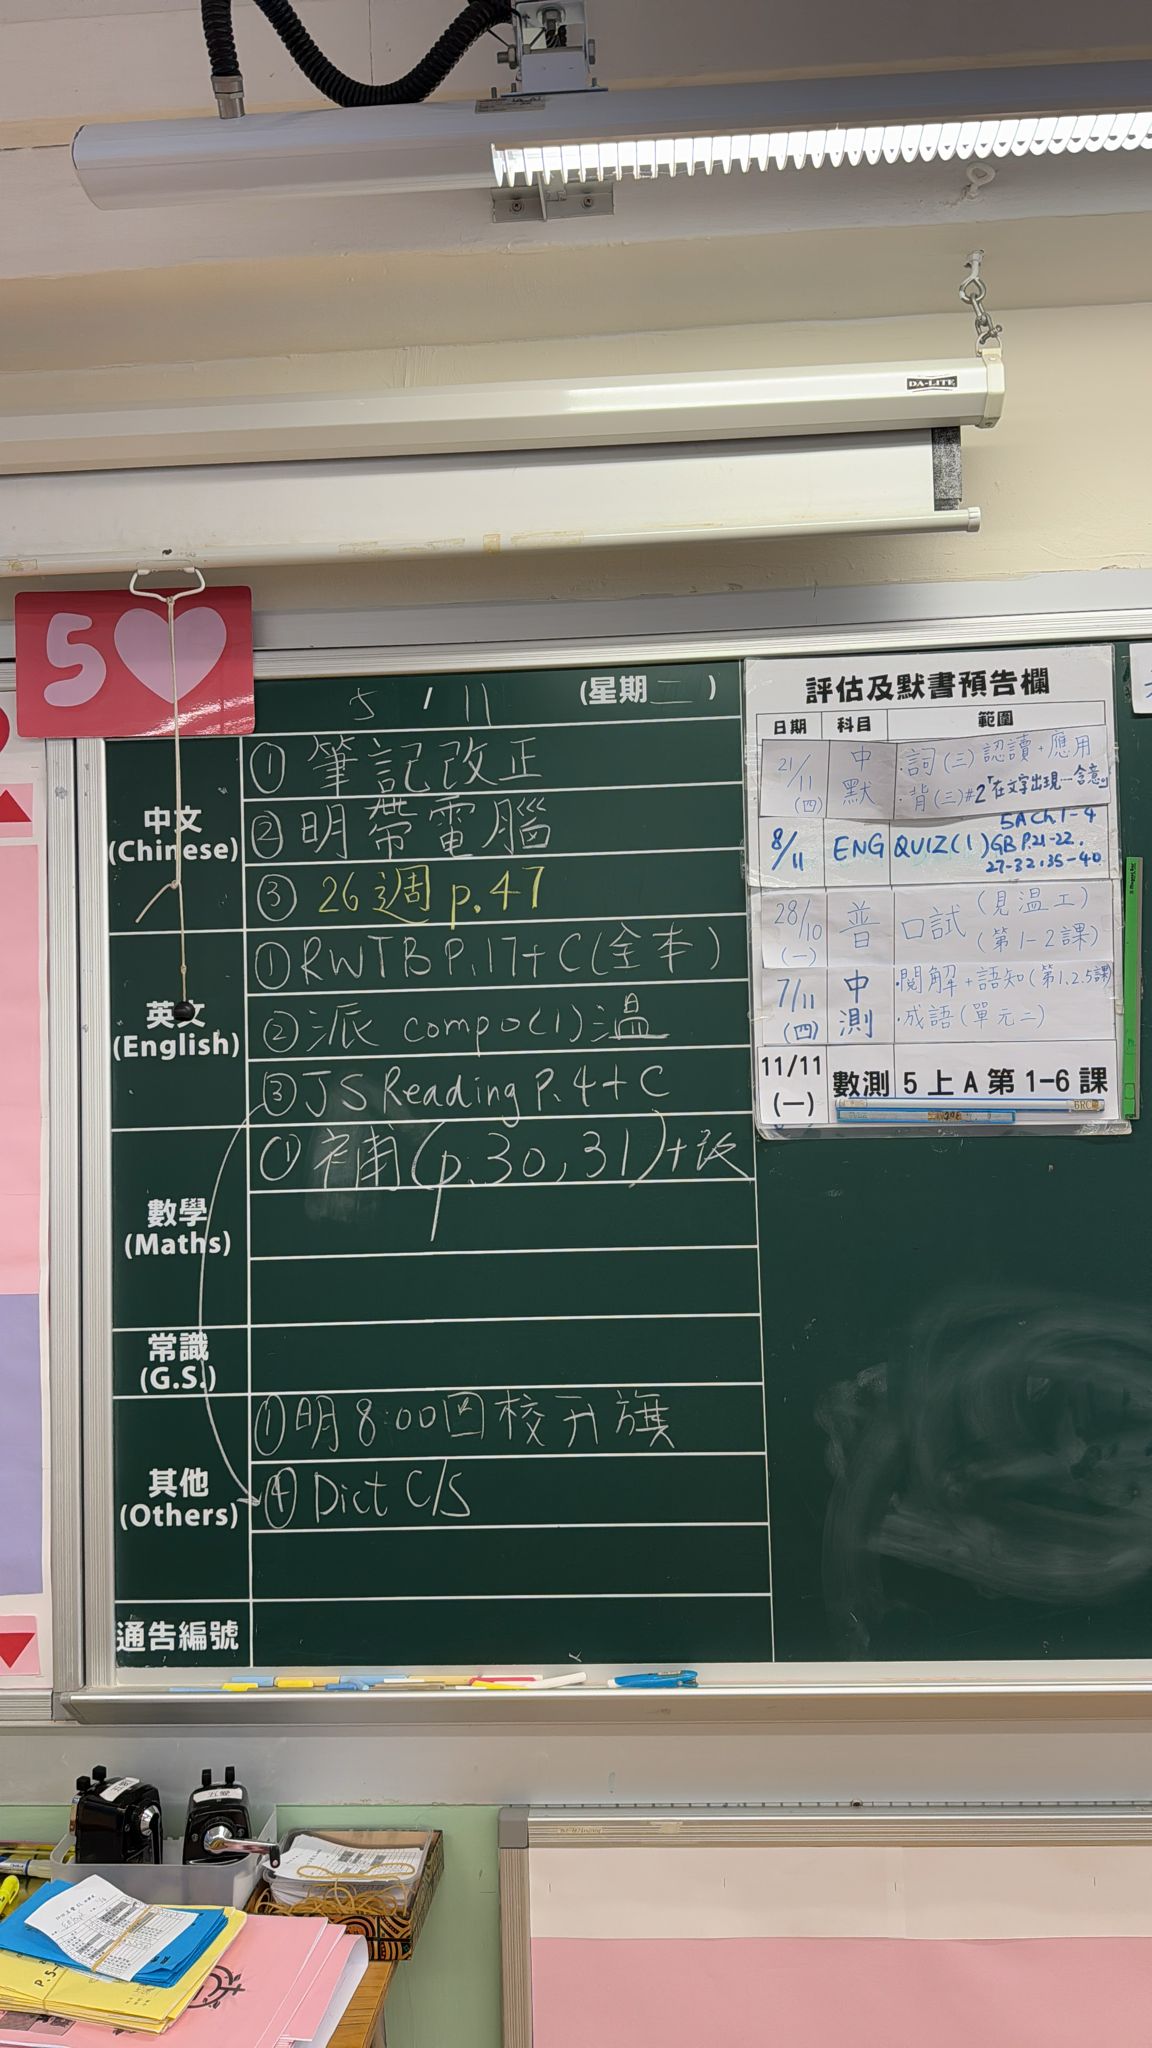 DA-LITE
5
5 / 11 (星期二)
中文
(Chinese)
① 筆記改正
② 明帶電腦
③ 26週 p.47
英文
(English)
① RWTB P.17+C(全本)
② 派 compo(1)溫
③ JS Reading P.4+C
數學
(Maths)
① 補(p.30,31)+改
常識
(G.S.)
其他
(Others)
① 明8:00回校升旗
④ Dict C/S
通告編號
評估及默書預告欄
日期 科目 範圍
21/11 (四) 中默 ·詞(三)認讀+應用
·背(三)#2「在文字出現…含意」
8/11 ENG QUIZ(1) 5A Ch1-4
GB P.21-22,
27-32,35-40
28/10 (一) 普 口試 (見溫工)
(第1-2課)
7/11 (四) 中測 ·閱解+語知(第1.2.5課)
·成語(單元二)
11/11 (一) 數測 5上A第1-6課